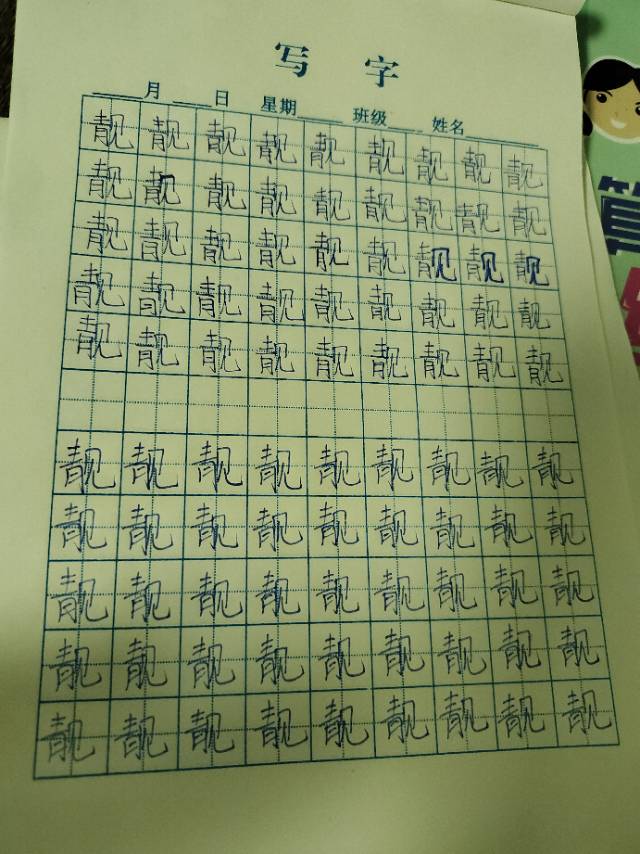 写 字
月 日 星期 班级 姓名
靓 靓 靓 靓 靓 靓 靓 靓 靓
靓 靓 靓 靓 靓 靓 靓 靓 靓
靓 靓 靓 靓 靓 靓 靓 靓 靓
靓 靓 靓 靓 靓 靓 靓 靓 靓
靓 靓 靓 靓 靓 靓 靓 靓 靓
靓 靓 靓 靓 靓 靓 靓 靓 靓
靓 靓 靓 靓 靓 靓 靓 靓 靓
靓 靓 靓 靓 靓 靓 靓 靓 靓
靓 靓 靓 靓 靓 靓 靓 靓 靓
靓 靓 靓 靓 靓 靓 靓 靓 靓
算